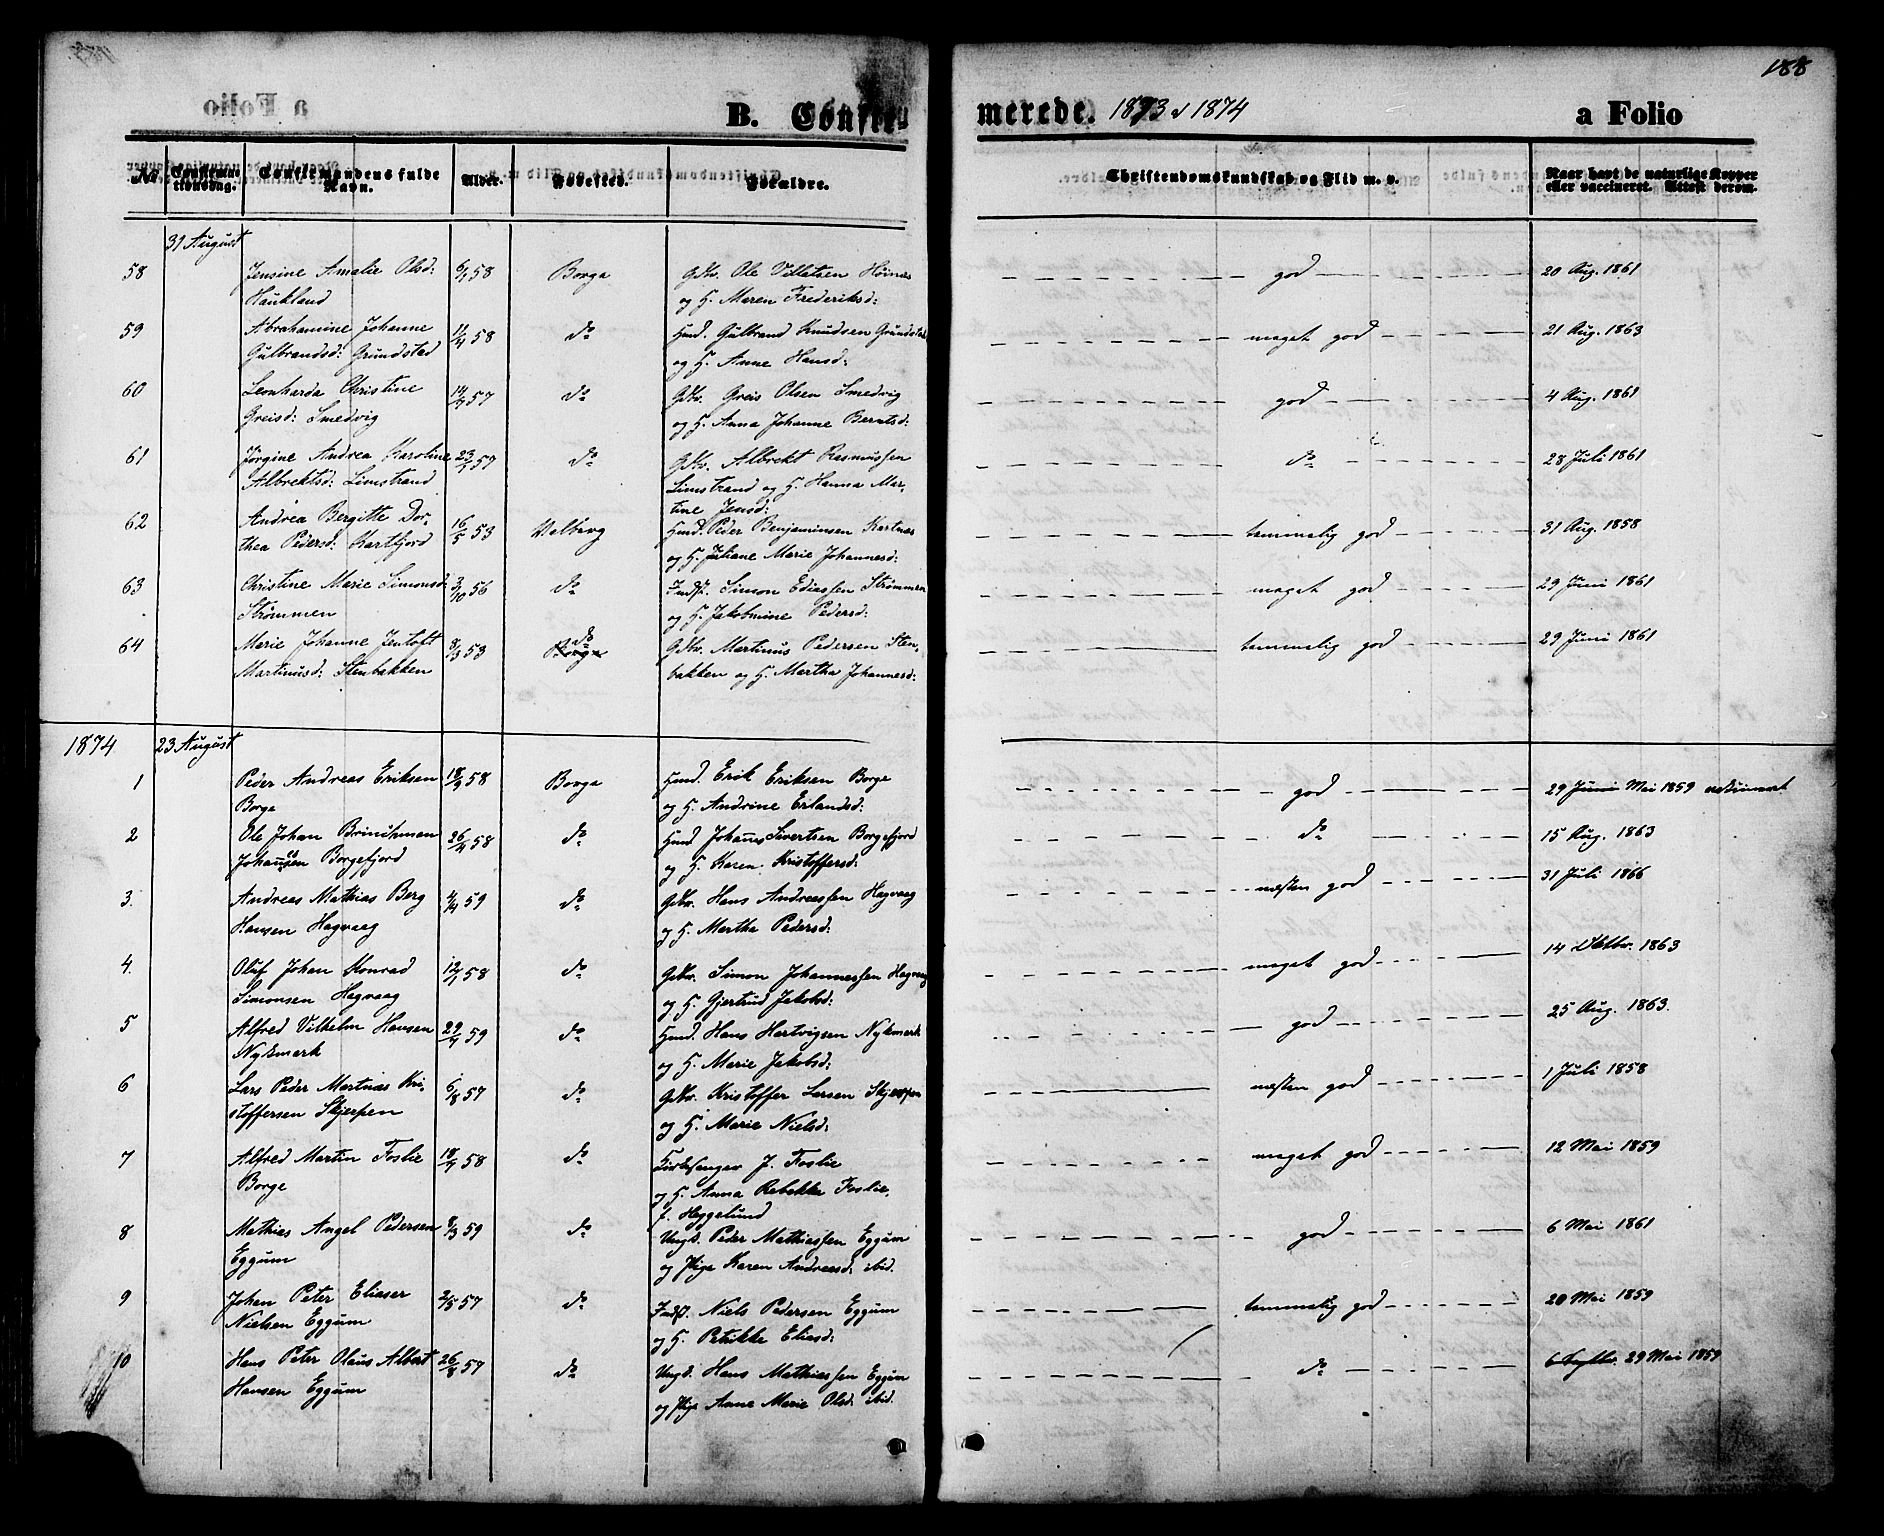 188
B. Confirmerede. 1873 & 1874 a Folio
No. Confirmationsdag. Confirmandens fulde Navn. Alder. Fødested. Forældre. Christendomskundskab og Flid m. v. Naar havt de naturlige Kopper eller vaccineret. Attest derom.
31 August
58 Jensine Amalie Olsd: 6/1 58 Borge Gdbr. Ole Villatsen Høinæs god 20 Aug. 1861
Haukland og H. Maren Frederiksd:
59 Abrahamine Johanne 11/4 58 do Huusmd. Gulbrand Knudsen Grundstad meget god 21 Aug. 1863
Gulbrandsd: Grundstad og H. Anne Hansd:
60 Leonharda Christine 14/7 57 do Gdbr. Greis Olsen Smedvig god 4 Aug. 1861
Greisd: Smedvig og H. Anna Johanne Berntsd:
61 Jørgine Andrea Karoline 23/7 57 do Gdbr. Albrekt Rasmussen do 28 Juli 1861
Albrektsd: Limstrand Limstrand og H. Hanna Mar-
tine Jensd:
62 Andrea Bergitte Dor- 16/5 53 Valberg Hmd. Peder Benjaminsen Kartnæs temmelig god 31 Aug. 1858
thea Pedersd: Kartfjord og H. Juliane Marie Johannesd:
63 Christine Marie Simonsd: 3/10 56 do Indst. Simon Ediassen Strømmen meget god 29 Juni 1861
Strømmen og H. Jakobmine Pedersd:
64 Marie Johanne Jentoft 8/3 53 do Borge Gdbr. Martinus Pedersen Sten- temmelig god 29 Juni 1861
Martinusd: Stenbakken bakken og H. Martha Johannesd:
1874 23 August
1 Peder Andreas Eriksen 18/9 58 Borge Hmd. Erik Eriksen Borge god 29 Juni Mai 1859
Borge og H. Andrine Erlandsd:
2 Ole Johan Brinchman 26/4 58 do Hmd Johannes Sivertsen Borgefjord do 15 Aug. 1863
Johannesen Borgefjord og H. Karen Kristoffersd:
3. Andreas Mathias Berg 4/4 59 do Gdbr. Hans Andreassen Hagvaag næsten god 31 Juli 1866
Hansen Hagvaag og H. Martha Pedersd:
4. Oluf Johan Konrad 12/1 58 do Gdbr. Simon Johannessen Hagvaag meget god 14 Oktbr. 1863
Simonsen Hagvaag og H. Gjertrud Jakobsd:
5 Alfred Vilhelm Hansen 29/4 59 do Hmd. Hans Hartvigsen Nykmark god 25 Aug. 1863.
Nykmark og H. Marie Jakobsd:
6 Lars Peder Martnas Kri- 6/8 57 do Gdbr. Kristoffer Larsen Skjerpen næsten god 1 Juli 1858
stoffersen Skjerpen og H. Marie Nielsd:
7 Alfred Martin Foslie 18/7 58 do Kirkesanger J. Foslie meget god 12 Mai 1859
Borge og H. Anna Rebekke Foslie,
f. Heggelund
8 Mathias Angel Pedersen 8/3 59 do Ungk. Peder Mathiassen Eggum god 6 Mai 1861
Eggum og Pige Karen Andreasd: ibid.
9 Johan Peter Eliaser 2/5 57 do Indst. Niels Pedersen Eggum temmelig god 20 Mai 1859
Nielsen Eggum og H. Petrikke Eliasd:
10 Hans Peter Olaus Albert 26/8 57 do Ungk. Hans Mathiassen Eggum do 6 Septbr. 29 Mai 1859
Hansen Eggum og Pige Anne Marie Olsd: ibid.